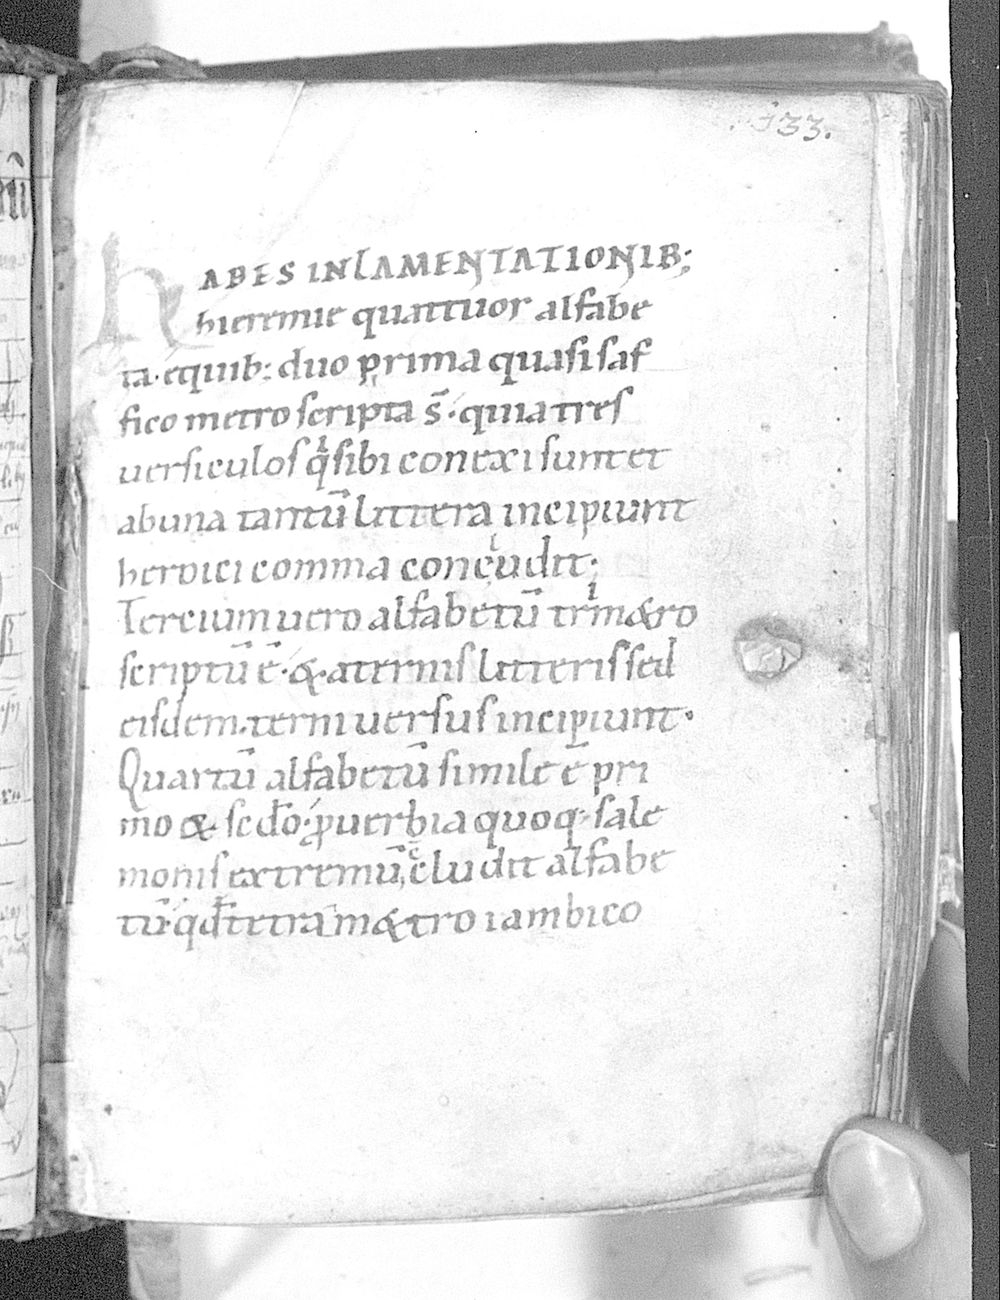 133.
HABES IN LAMENTATIONIB;
hieremie quattuor alfabe
ta· equib: duo prima quasi saf
fico metro scripta s̄· quia tres
uersiculos q̄ sibi conexi sunt et
ab una tantū littera incipiunt
heroici comma concludit;
Tercium uero alfabetū trim&ro
scriptū ē· & a ternis litteris sed
eisdem· terni uersus incipiunt·
Quartū alfabetū simile ē pri
mo & scdo· ꝓuerbia quoq· sale
monis extremū cludit alfabe
tū· qd tetram&ro iambico